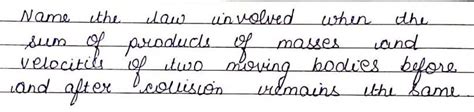 Name the law involved when the
sum of products of masses and
velocities of two moving bodies before
and after collision remains the same